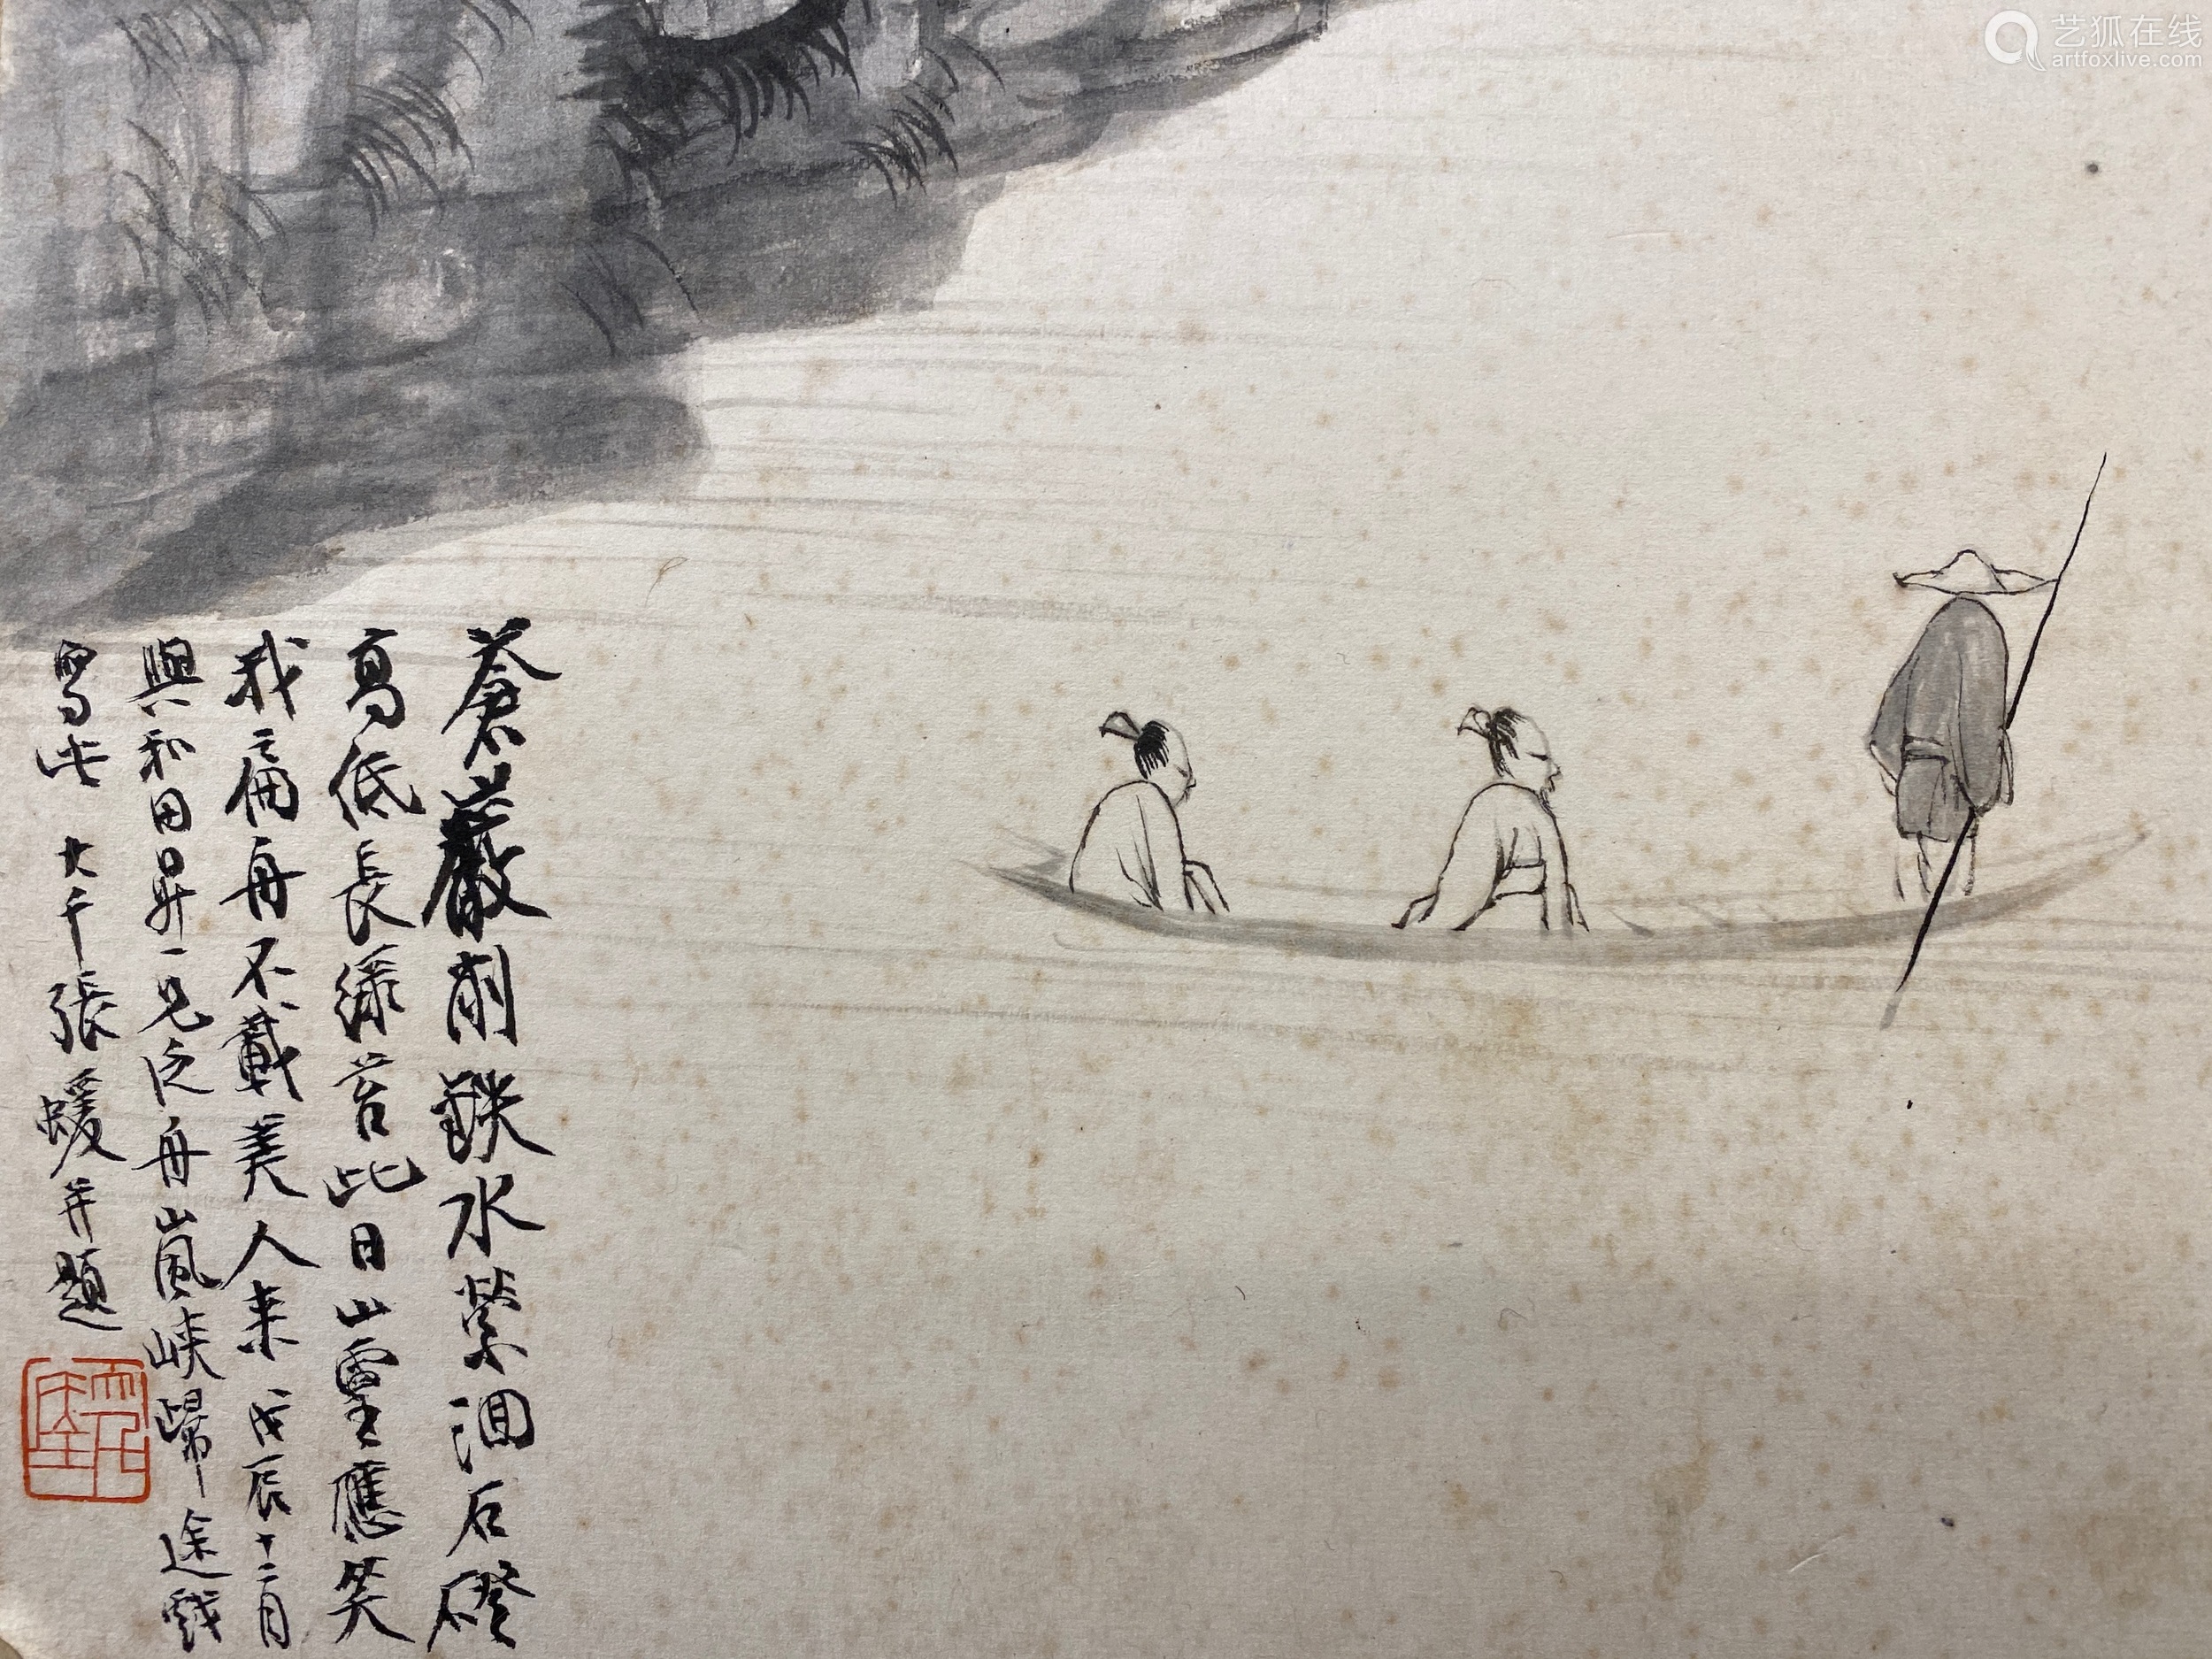 蒼巖削鐵水縈洄石磴
高低長綠苔此日山靈應笑
我扁舟不載美人来戊辰十二月
與和田昇一兄泛舟嵐峽歸途戲
寫此 大千張蝯并題
艺狐在线
artfoxlive.com